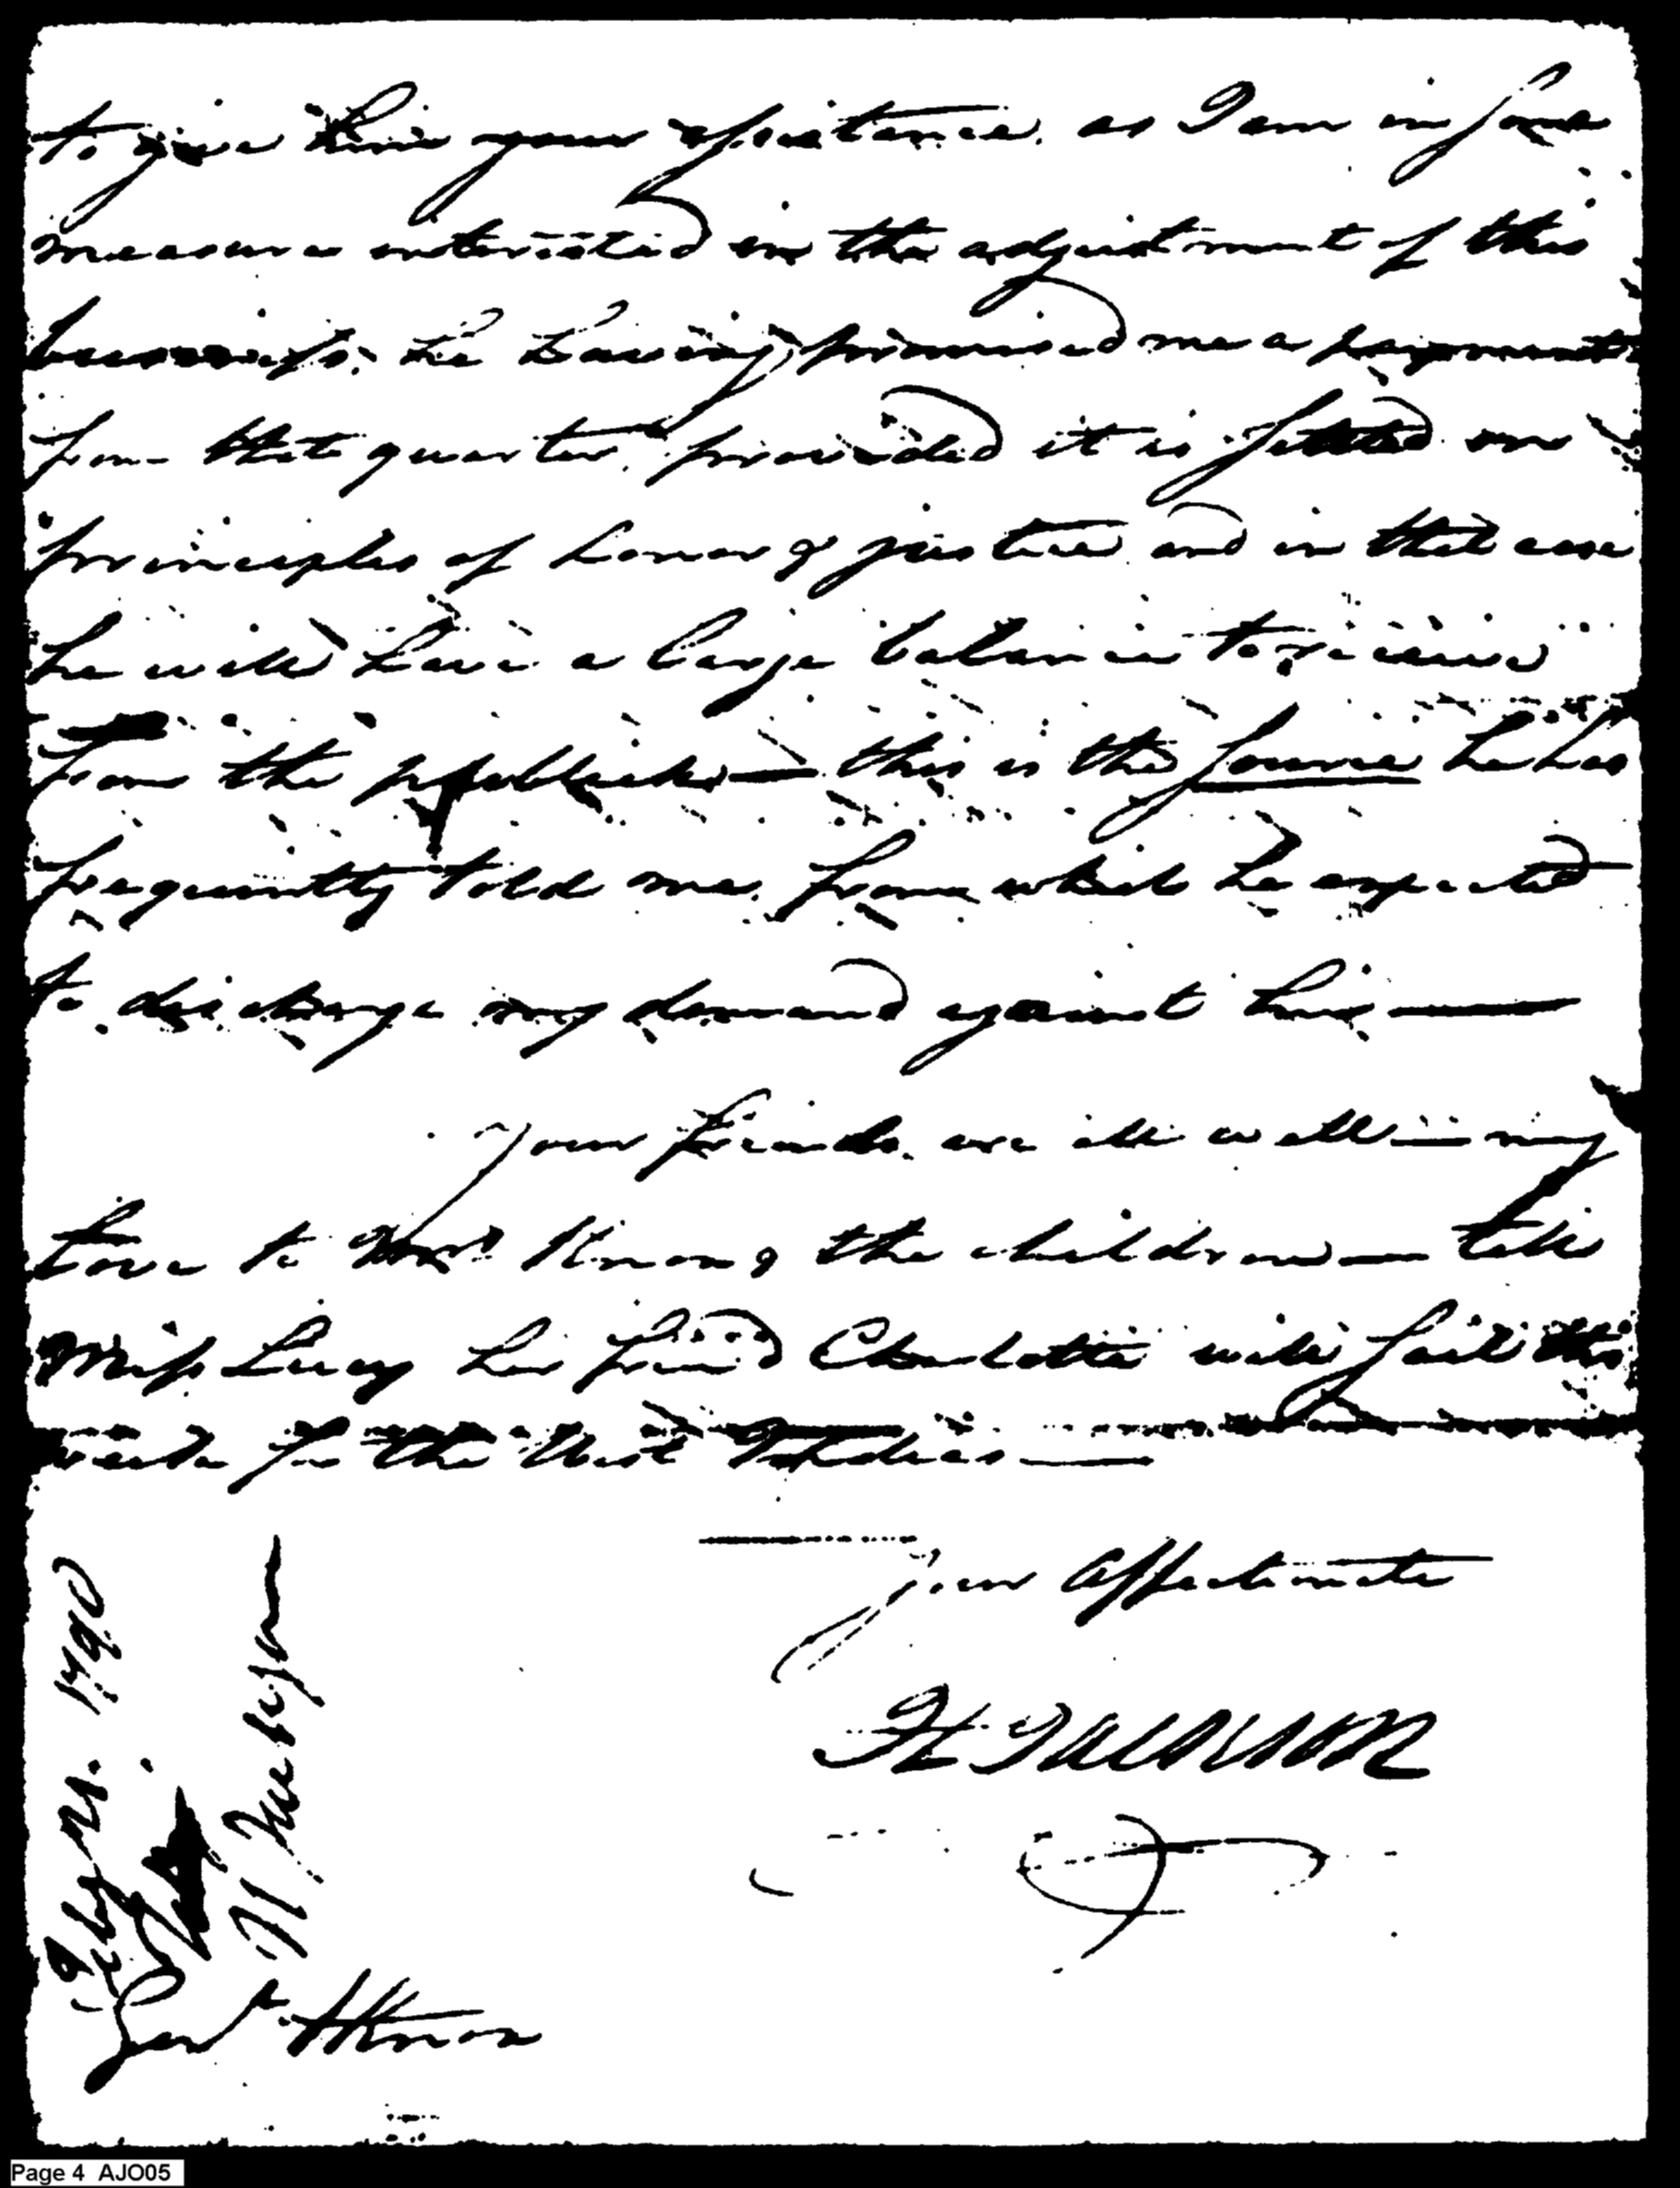 to give him your assistance. as I am in some
measure interested in the adjustment of this
business. he having promised me a payment
from that quarter, provided it is settled on
principles of honor & justice and in that case
he will have a large balance to receive
from the publick — this is the source he has
frequently told me, from which he expected
to discharge my demand against him —
your friends are all well — my
Love to Mrs Knox & the children — tell
Miss Lucy her friend Charlotte will sail this
week for the West Indies —
your affectionate
H Jackson
Genl H Knox
H Jackson
21. 1790
Page 4 AJO05